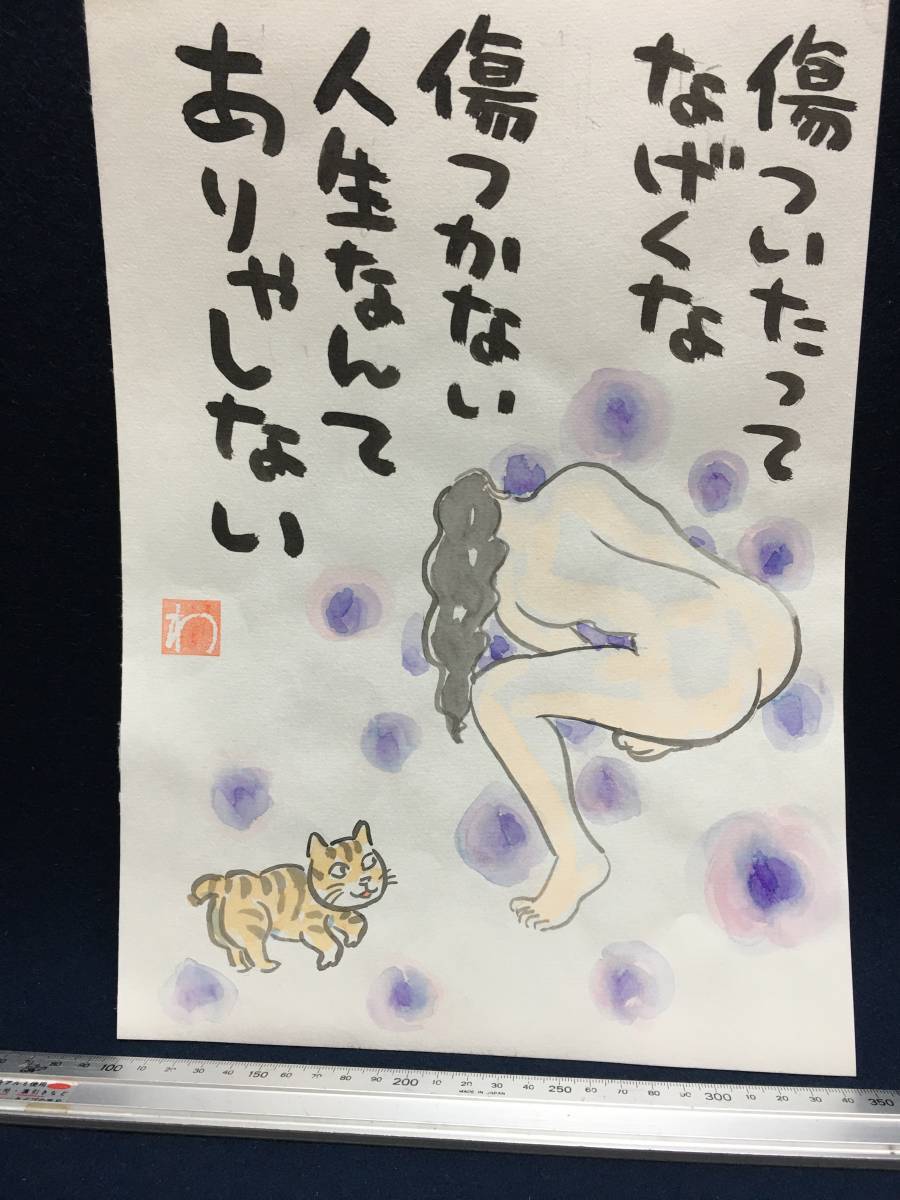 傷ついたって
なげくな
傷つかない
人生なんて
ありゃしない
わ
100 10 20 30 40 150 60 70 80 90 200 10 20 30 40 250 60 70 80 90 300 10 20 30 40 350
MADE IN JAPAN